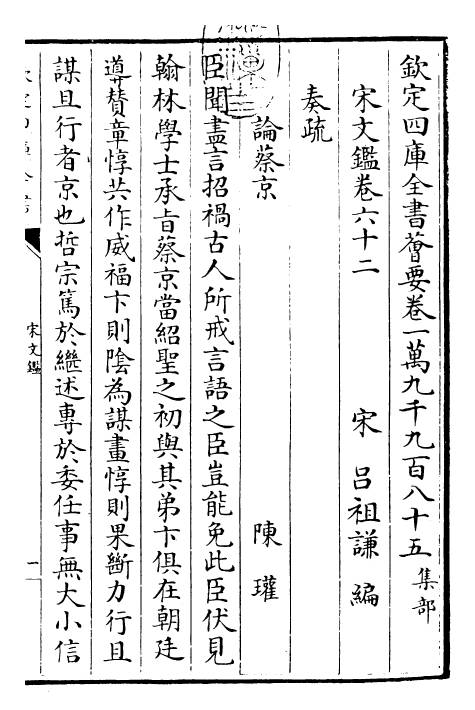 欽定四庫全書薈要卷一萬九千九百八十五集部
宋文鑑卷六十二　宋　呂祖謙　編
奏疏
論蔡京　陳瓘
臣聞盡言招禍古人所戒言語之臣豈能免此臣伏見
翰林學士承旨蔡京當紹聖之初與其弟卞俱在朝廷
導贊章惇共作威福卞則陰為謀畫惇則果斷力行且
謀且行者京也哲宗篤於繼述專於委任事無大小信
宋文鑑
一